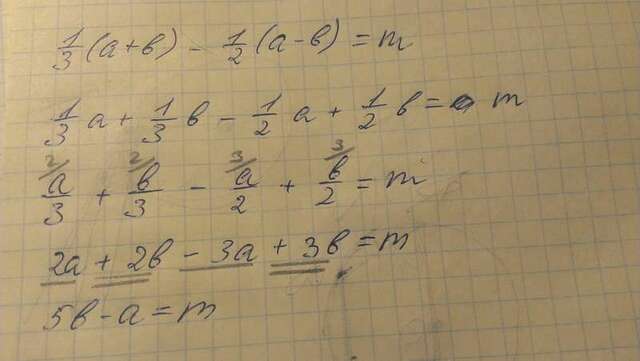 1/3 (a+в) - 1/2 (a-в) = m
1/3 a + 1/3 в - 1/2 a + 1/2 в = m
2/ 2/ 3/ 3/
a/3 + в/3 - a/2 + в/2 = m
2a + 2в - 3a + 3в = m
5в - a = m